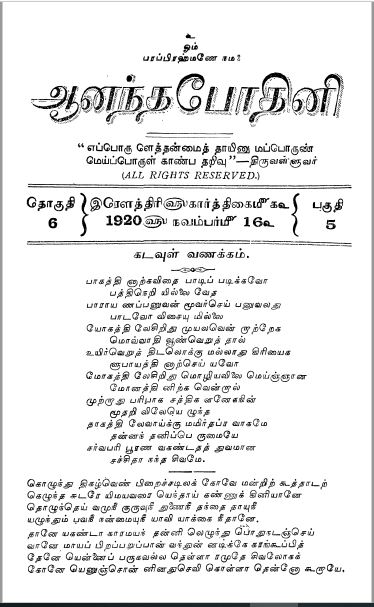 உ
ஓம்
பரப்பிரஹ்மணே நம:
ஆனந்தபோதினி
“எப்பொரு ளெத்தன்மைத் தாயினு மப்பொருண்
மெய்ப்பொருள் காண்ப தறிவு”—திருவள்ளுவர்
(ALL RIGHTS RESERVED.)
தொகுதி
6
இரௌத்திரிளு கார்த்திகைமீ கஉ
1920ளு நவம்பர்மீ 16உ
பகுதி
5
கடவுள் வணக்கம்.
பாகத்தி னாற்கவிதை பாடிப் படிக்கவோ
பத்திநெறி யில்லை வேத
பாராய ணப்பனுவன் மூவர்செய் பனுவலது
பாடவோ விசையு மில்லை
யோகத்தி லேசிறிது முயலவென் றாற்றேக
மொவ்வாதி வூண்வெறுத் தால்
உயிர்வெறுத் திடலொக்கு மல்லாது கிரியைக
ளுபாயத்தி னாற்செய் யவோ
மோகத்தி லேசிறிது மொழியவிலை மெய்ஞ்ஞான
மோனத்தி னிற்க வென்றால்
முற்றாது பரிபாக சத்திக ளனேகநின்
மூதறி விலேயெ ழுந்த
தாகத்தி லேவாய்க்கு மமிர்தப்ர வாகமே
தன்னந் தனிப்பெ ருமையே
சர்வபரி பூரண வகண்டதத் துவமான
சச்சிதா நந்த சிவமே.
கொழுந்து திகழ்வெண் பிறைச்சடிலக் கோவே மன்றிற் கூத்தாடற்
கெழுந்த சுடரே யிமயவரை யெந்தாய் கண்ணுக் கினியானே
தொழுந்தெய் வமுநீ குருவுநீ துணைநீ தந்தை தாயுநீ
யழுந்தும் பவநீ நன்மையுநீ யாவி யாக்கை நீதானே.
தானே யகண்டா காரமயந் தன்னி லெழுந்து பொதுநடஞ்செய்
வானே மாயப் பிறப்பறுப்பான் வந்துன் னடிக்கே கரங்கூப்பித்
தேனே யென்னைப் பருகவல்ல தெள்ளா ரமுதே சிவலோகக்
கோனே யெனுஞ்சொன் னினதுசெவி கொள்ளா தென்னோ கூறாயே.